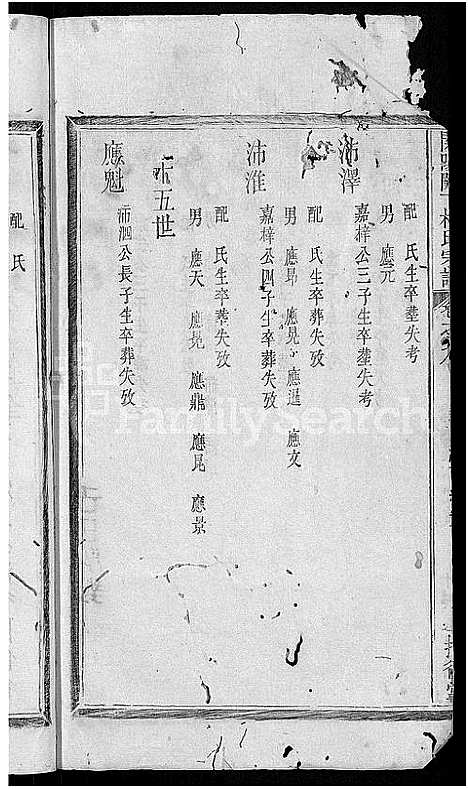 配 氏生卒塟失考
男 應元
沛澤 嘉梓公三子生卒塟失考
配 氏生卒葬失攷
男 應昂 應晃 應暹 應文
沛淮 嘉梓公四子生卒葬失攷
配 氏生卒塟失攷
男 應天 應晃 應鼎 應昆 應景
十五世
應魁 沛泗公長子生卒葬失攷
配 氏
FamilySearch